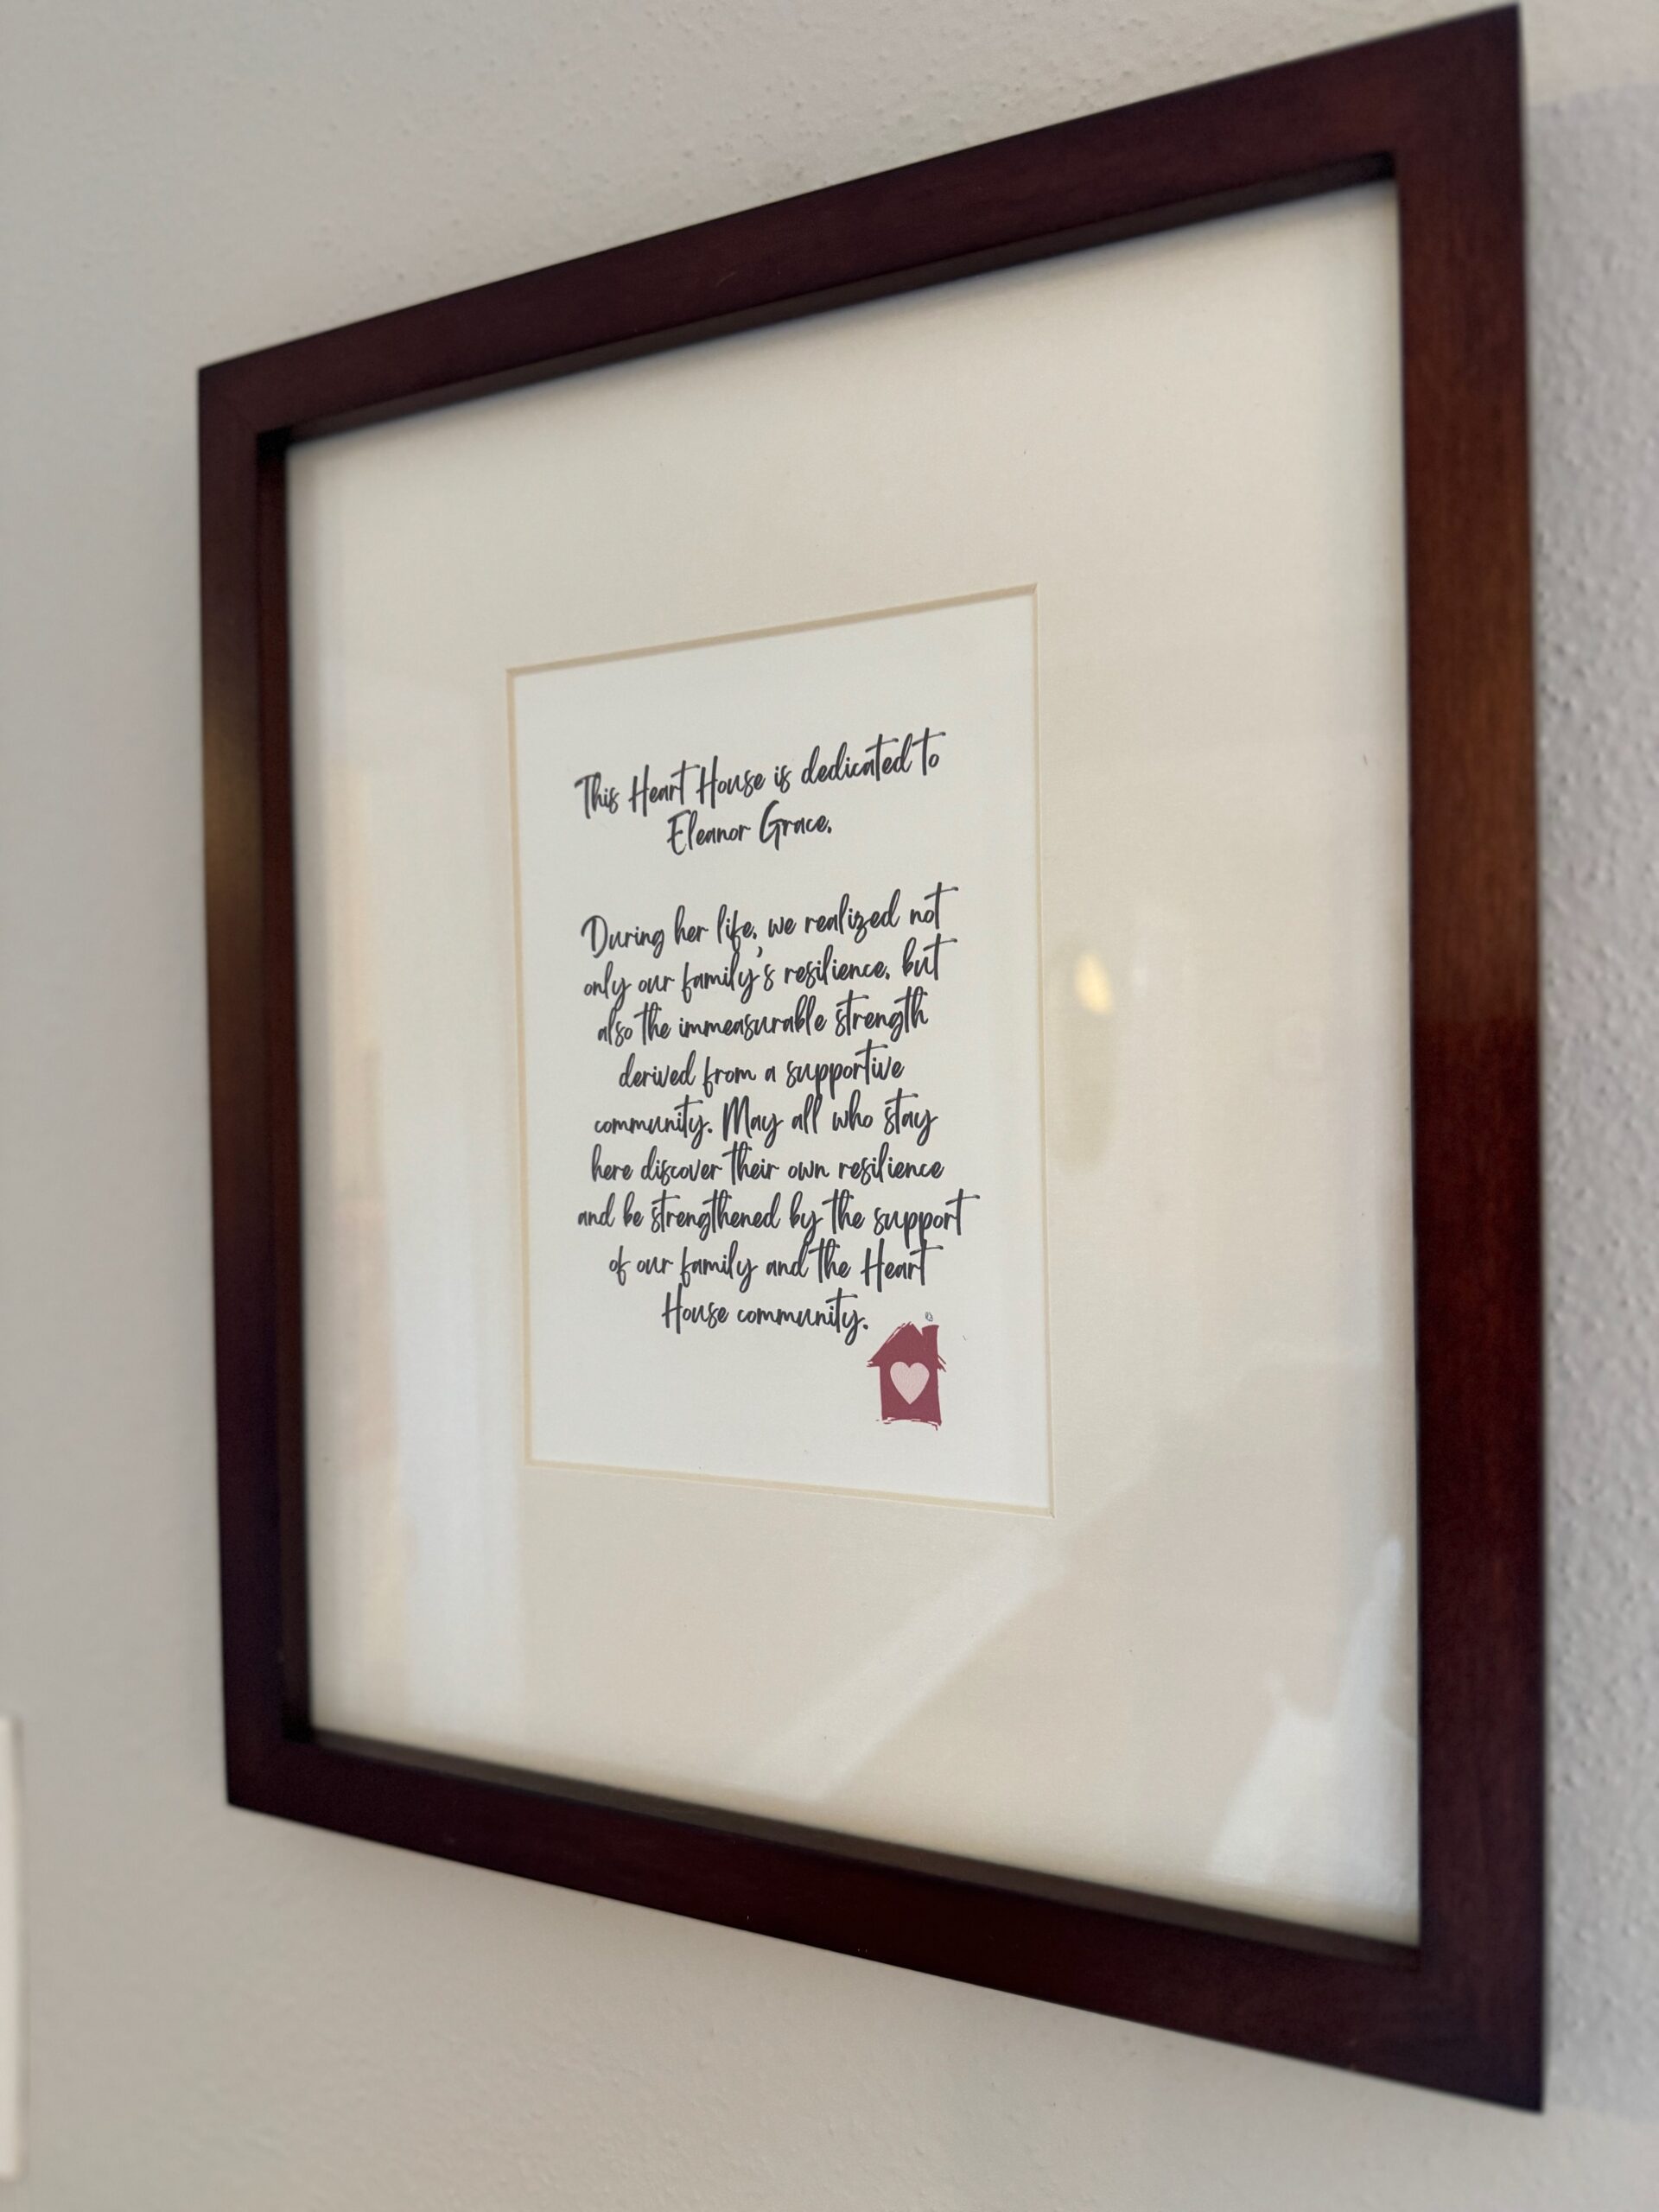 This Heart House is dedicated to
Eleanor Grace.
During her life, we realized not
only our family's resilience, but
also the immeasurable strength
derived from a supportive
community. May all who stay
here discover their own resilience
and be strengthened by the support
of our family and the Heart
House community.